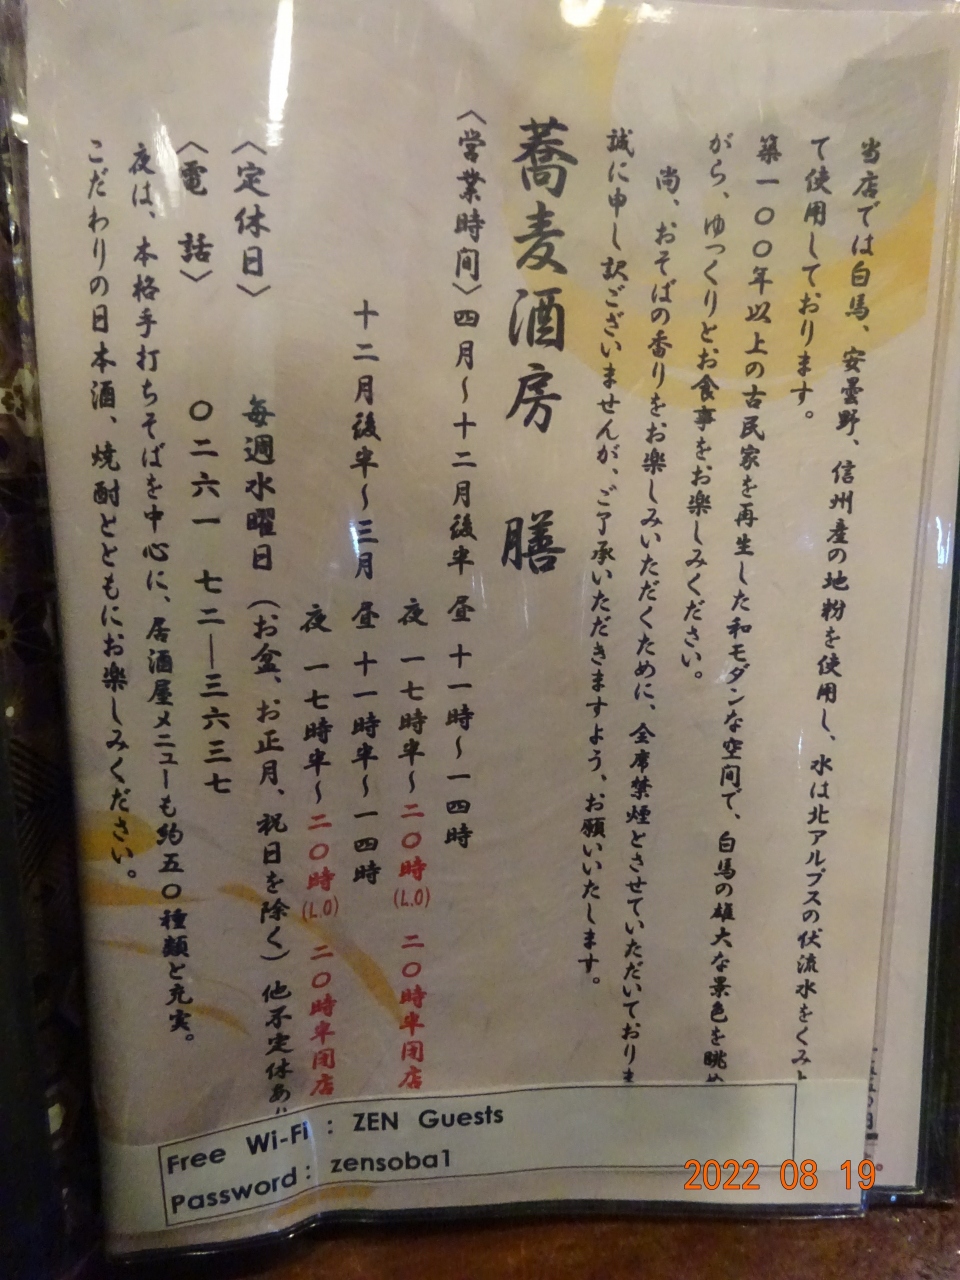 当店では白馬、安曇野、信州産の地粉を使用し、水は北アルプスの伏流水をくみ
て使用しております。
築一〇〇年以上の古民家を再生した和モダンな空間で、白馬の雄大な景色を眺め
がら、ゆっくりとお食事をお楽しみください。
尚、おそばの香りをお楽しみいただくために、全席禁煙とさせていただいておりま
誠に申し訳ございませんが、ご了承いただきますよう、お願いいたします。
蕎麦酒房 膳
〈営業時间〉四月〜十二月後半 昼 十一時〜一四時
夜 一七時半〜二〇時(L.O) 二〇時半闭店
十二月後半〜三月 昼 十一時半〜一四時
夜 一七時半〜二〇時(L.O) 二〇時半闭店
〈定休日〉 毎週水曜日(お盆、お正月、祝日を除く)他不定休あ
〈電 話〉 〇二六一 七二―三六三七
夜は、本格手打ちそばを中心に、居酒屋メニューも約五〇種類と充実。
こだわりの日本酒、焼酎とともにお楽しみください。
Free Wi-Fi : ZEN Guests
Password : zensoba1
2022 08 19